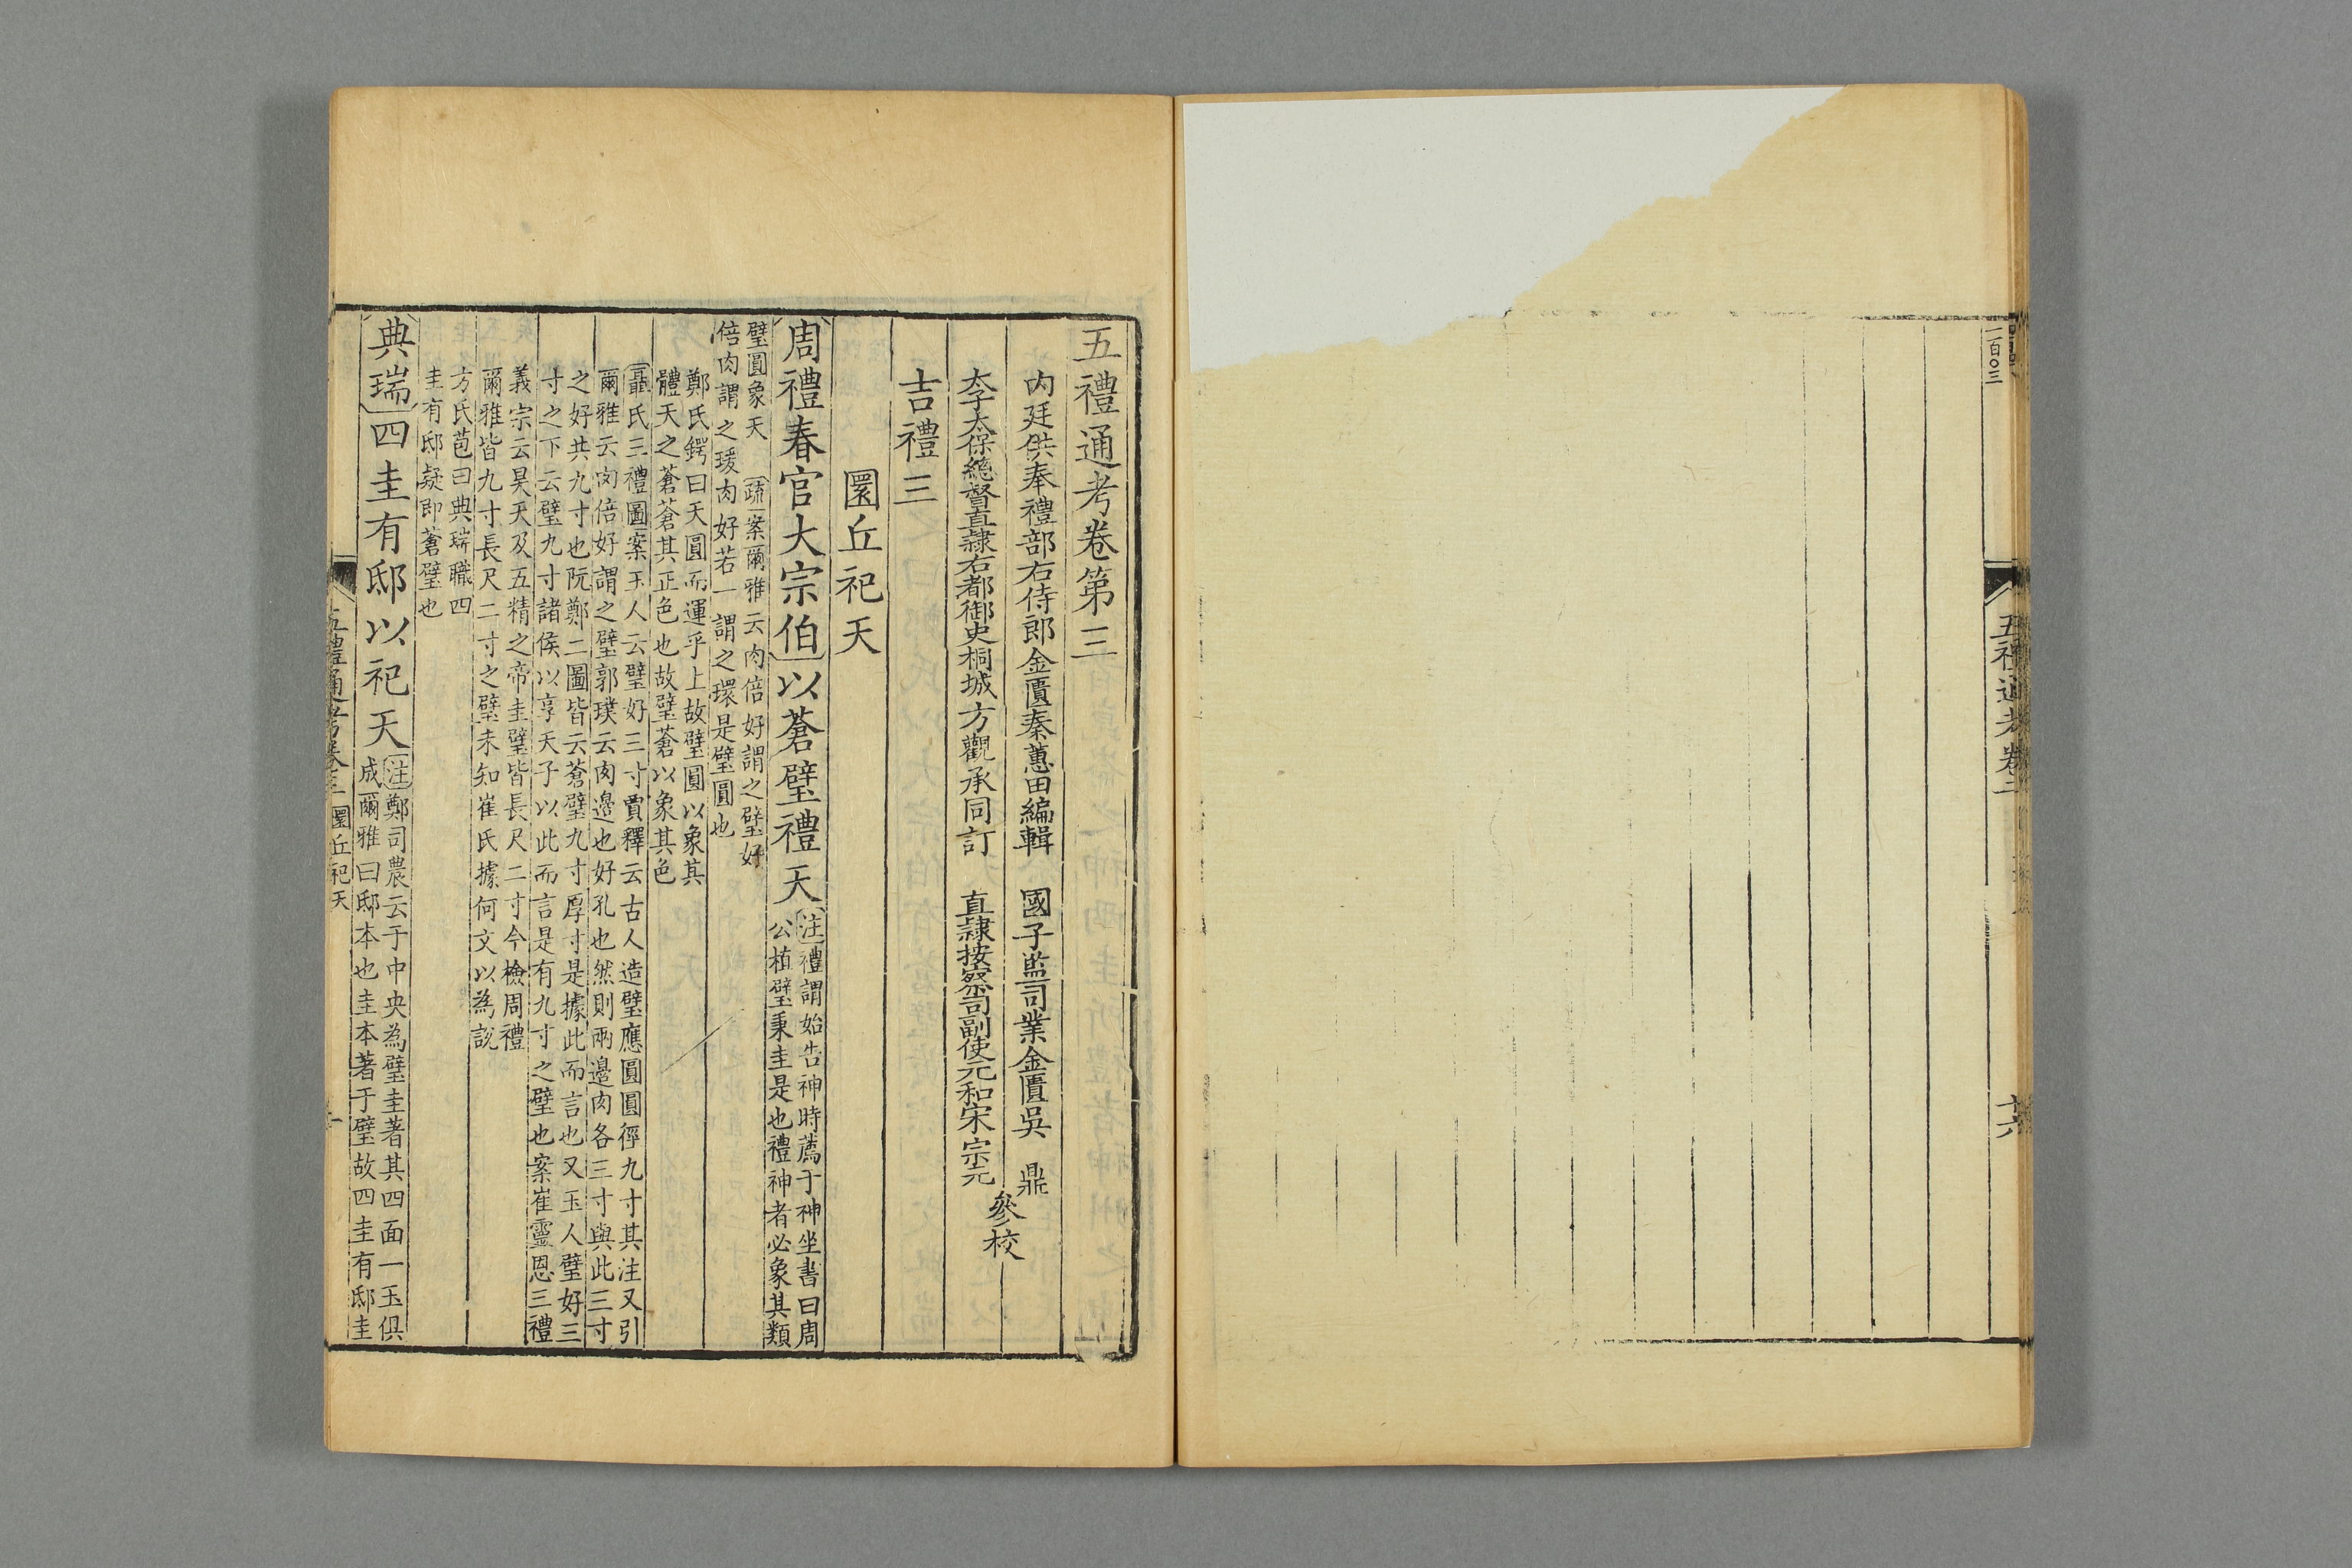 二百〇三
五禮通考卷二
十六
五禮通考卷第三
內廷供奉禮部右侍郎金匱秦蕙田編輯　國子監司業金匱吳　鼎
太子太保總督直隸右都御史桐城方觀承同訂　直隸按察司副使元和宋宗元
參校
吉禮三
圜丘祀天
周禮春官大宗伯以蒼璧禮天
注禮謂始告神時薦于神坐書曰周
公植璧秉圭是也禮神者必象其類
璧圓象天　疏案爾雅云肉倍好謂之璧好
倍肉謂之瑗肉好若一謂之環是璧圓也
鄭氏鍔曰天圓而運乎上故璧圓以象其
體天之蒼蒼其正色也故璧蒼以象其色
聶氏三禮圖案玉人云璧好三寸賈釋云古人造璧應圓圓徑九寸其注又引
爾雅云肉倍好謂之璧郭璞云肉邊也好孔也然則兩邊肉各三寸與此三寸
之好共九寸也阮鄭二圖皆云蒼璧九寸厚寸是據此而言也又玉人璧好三
寸之下云璧九寸諸侯以享天子以此而言是有九寸之璧也案崔靈恩三禮
義宗云昊天及五精之帝圭璧皆長尺二寸今檢周禮
爾雅皆九寸長尺二寸之璧未知崔氏據何文以為說
方氏苞曰典瑞職四
圭有邸疑即蒼璧也
典瑞四圭有邸以祀天
注鄭司農云于中央為璧圭著其四面一玉俱
成爾雅曰邸本也圭本著于璧故四圭有邸圭
五禮通考卷三　圜丘祀天
一